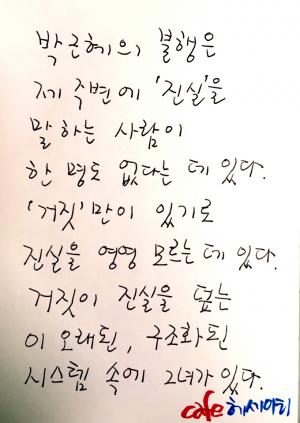 박근혜의 불행은
제 주변에 '진실'을
말하는 사람이
한 명도 없다는 데 있다.
'거짓'만이 있기로
진실을 영영 모르는 데 있다.
거짓이 진실을 덮는
이 오래된, 구조화된
시스템 속에 그녀가 있다.
cafe 헤세이티